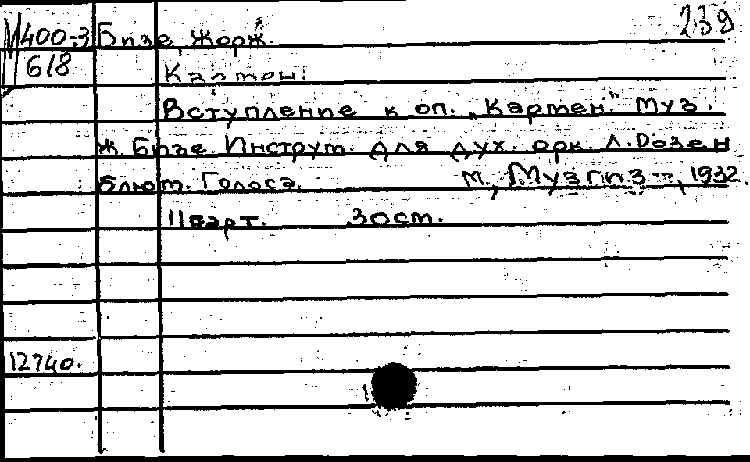 239
М400-3 Бизе, Жорж.
618 Кармен.
Вступление к оп. „Кармен." Муз.
Ж. Бизе. Инструм. для дух. орк. Л. Розен
блют. Голоса. М., Музгиз, 1932.
11 парт. 30 ст.
12740.